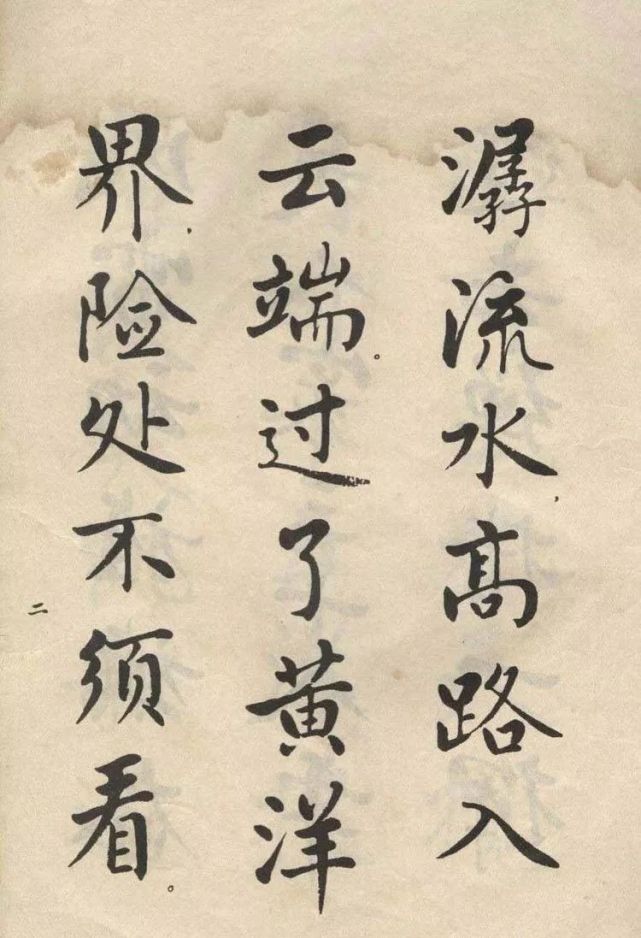 潺流水，高路入
云端。过了黄洋
界，险处不须看。
二